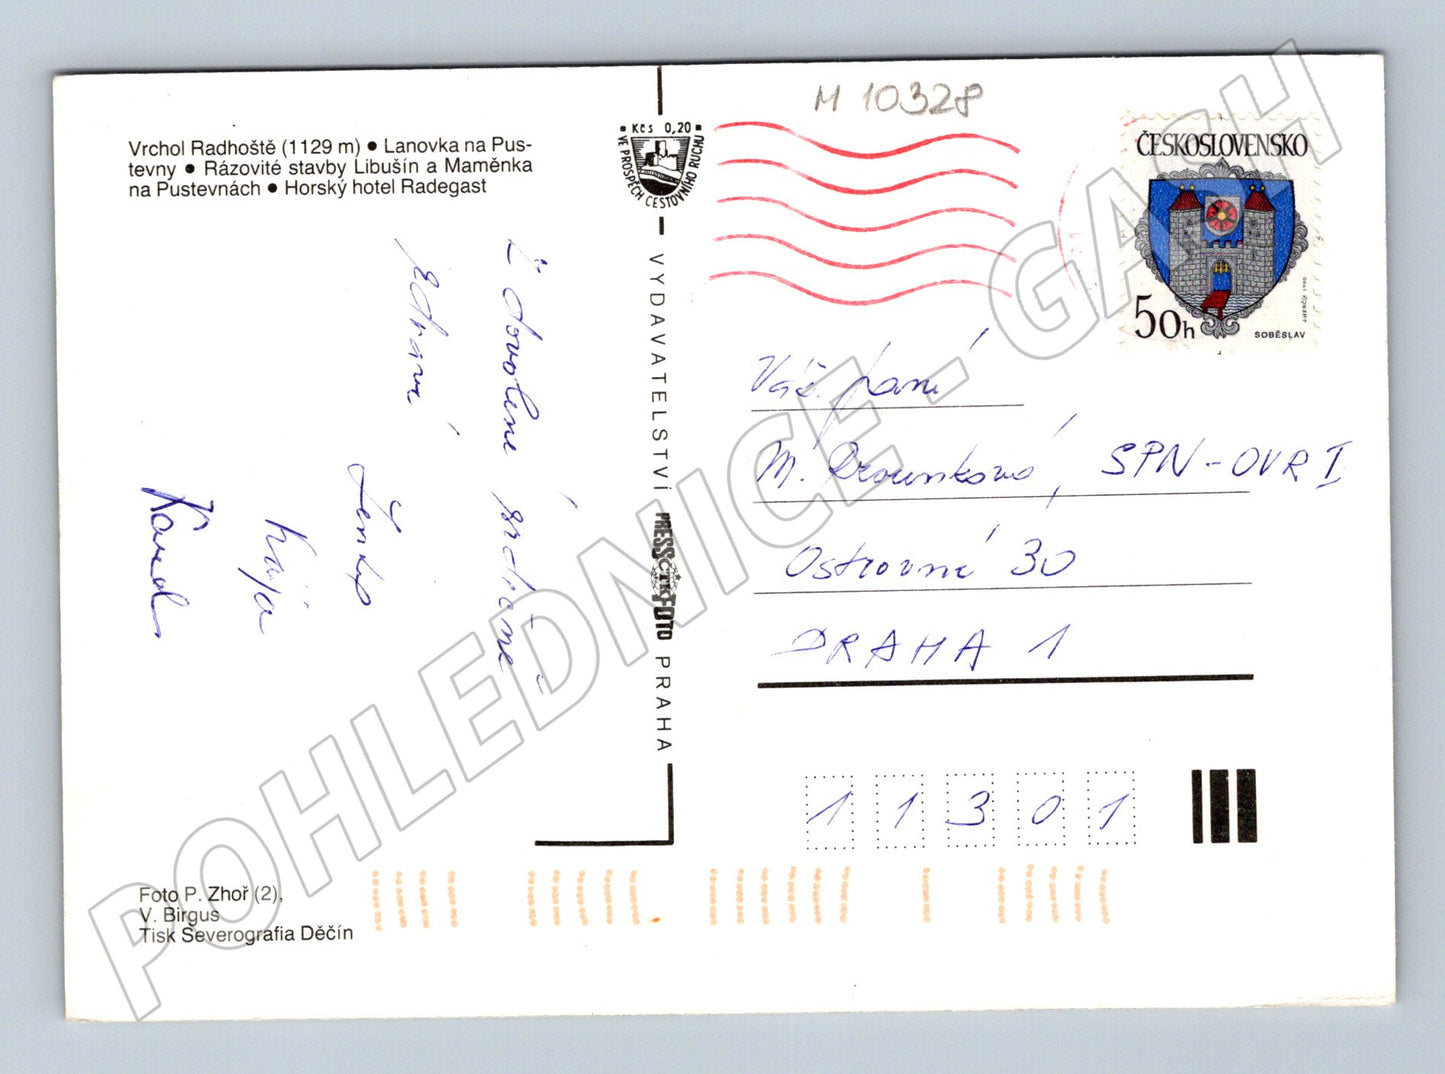 M 10328
Vrchol Radhoště (1129 m) ● Lanovka na Pus-
tevny ● Rázovité stavby Libušín a Maměnka
na Pustevnách ● Horský hotel Radegast
Kčs 0,20
VE PROSPĚCH CESTOVNÍHO RUCHU
ČESKOSLOVENSKO
50h
SOBĚSLAV
Z dovolené srdečně
zdraví
Lenka
Kája
Karel
VYDAVATELSTVÍ PRESSFOTO PRAHA
ČTK
Váž. paní
M. SPN-OVR I
Ostrovní 30
PRAHA 1
11301
Foto P. Zhoř (2),
V. Birgus
Tisk Severografia Děčín
POHLEDNICE - GASH